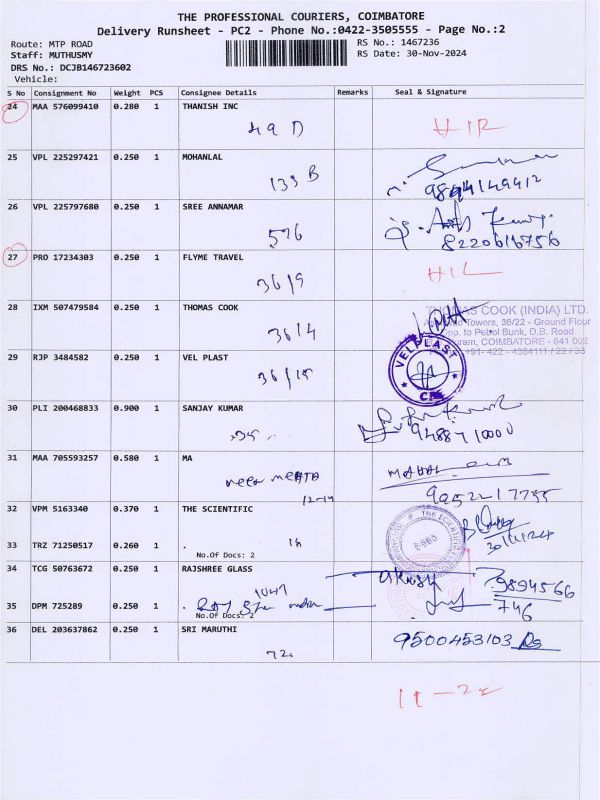 THE PROFESSIONAL COURIERS, COIMBATORE
Delivery Runsheet - PC2 - Phone No.:0422-3505555 - Page No.:2
Route: MTP ROAD
RS No.: 1467236
Staff: MUTHUSMY
RS Date: 30-Nov-2024
DRS No.: DCJB146723602
Vehicle:
S No Consignment No Weight PCS Consignee Details Remarks Seal & Signature
24 MAA 576099410 0.280 1 THANISH INC
49 D
25 VPL 225297421 0.250 1 MOHANLAL
133 B
9894149412
26 VPL 225797680 0.250 1 SREE ANNAMAR
576
8220616756
27 PRO 17234303 0.250 1 FLYME TRAVEL
36/9
28 IXM 507479584 0.250 1 THOMAS COOK
36/4
THOMAS COOK (INDIA) LTD.
Towers, 36/22 - Ground Floor
to Petrol Bunk, D.B. Road
COIMBATORE - 641 002
29 RJP 3484582 0.250 1 VEL PLAST
36/15
VELPLAST
30 PLI 200468833 0.900 1 SANJAY KUMAR
31 MAA 705593257 0.580 1 MA
12-14
32 VPM 5163340 0.370 1 THE SCIENTIFIC
THE SCIENTIFIC
30/11/24
33 TRZ 71250517 0.260 1 .
No.Of Docs: 2
34 TCG 50763672 0.250 1 RAJSHREE GLASS
1047
Akash
9894566
746
35 DPM 725289 0.250 1 .
No.Of Docs: 2
36 DEL 203637862 0.250 1 SRI MARUTHI
72
9500453103